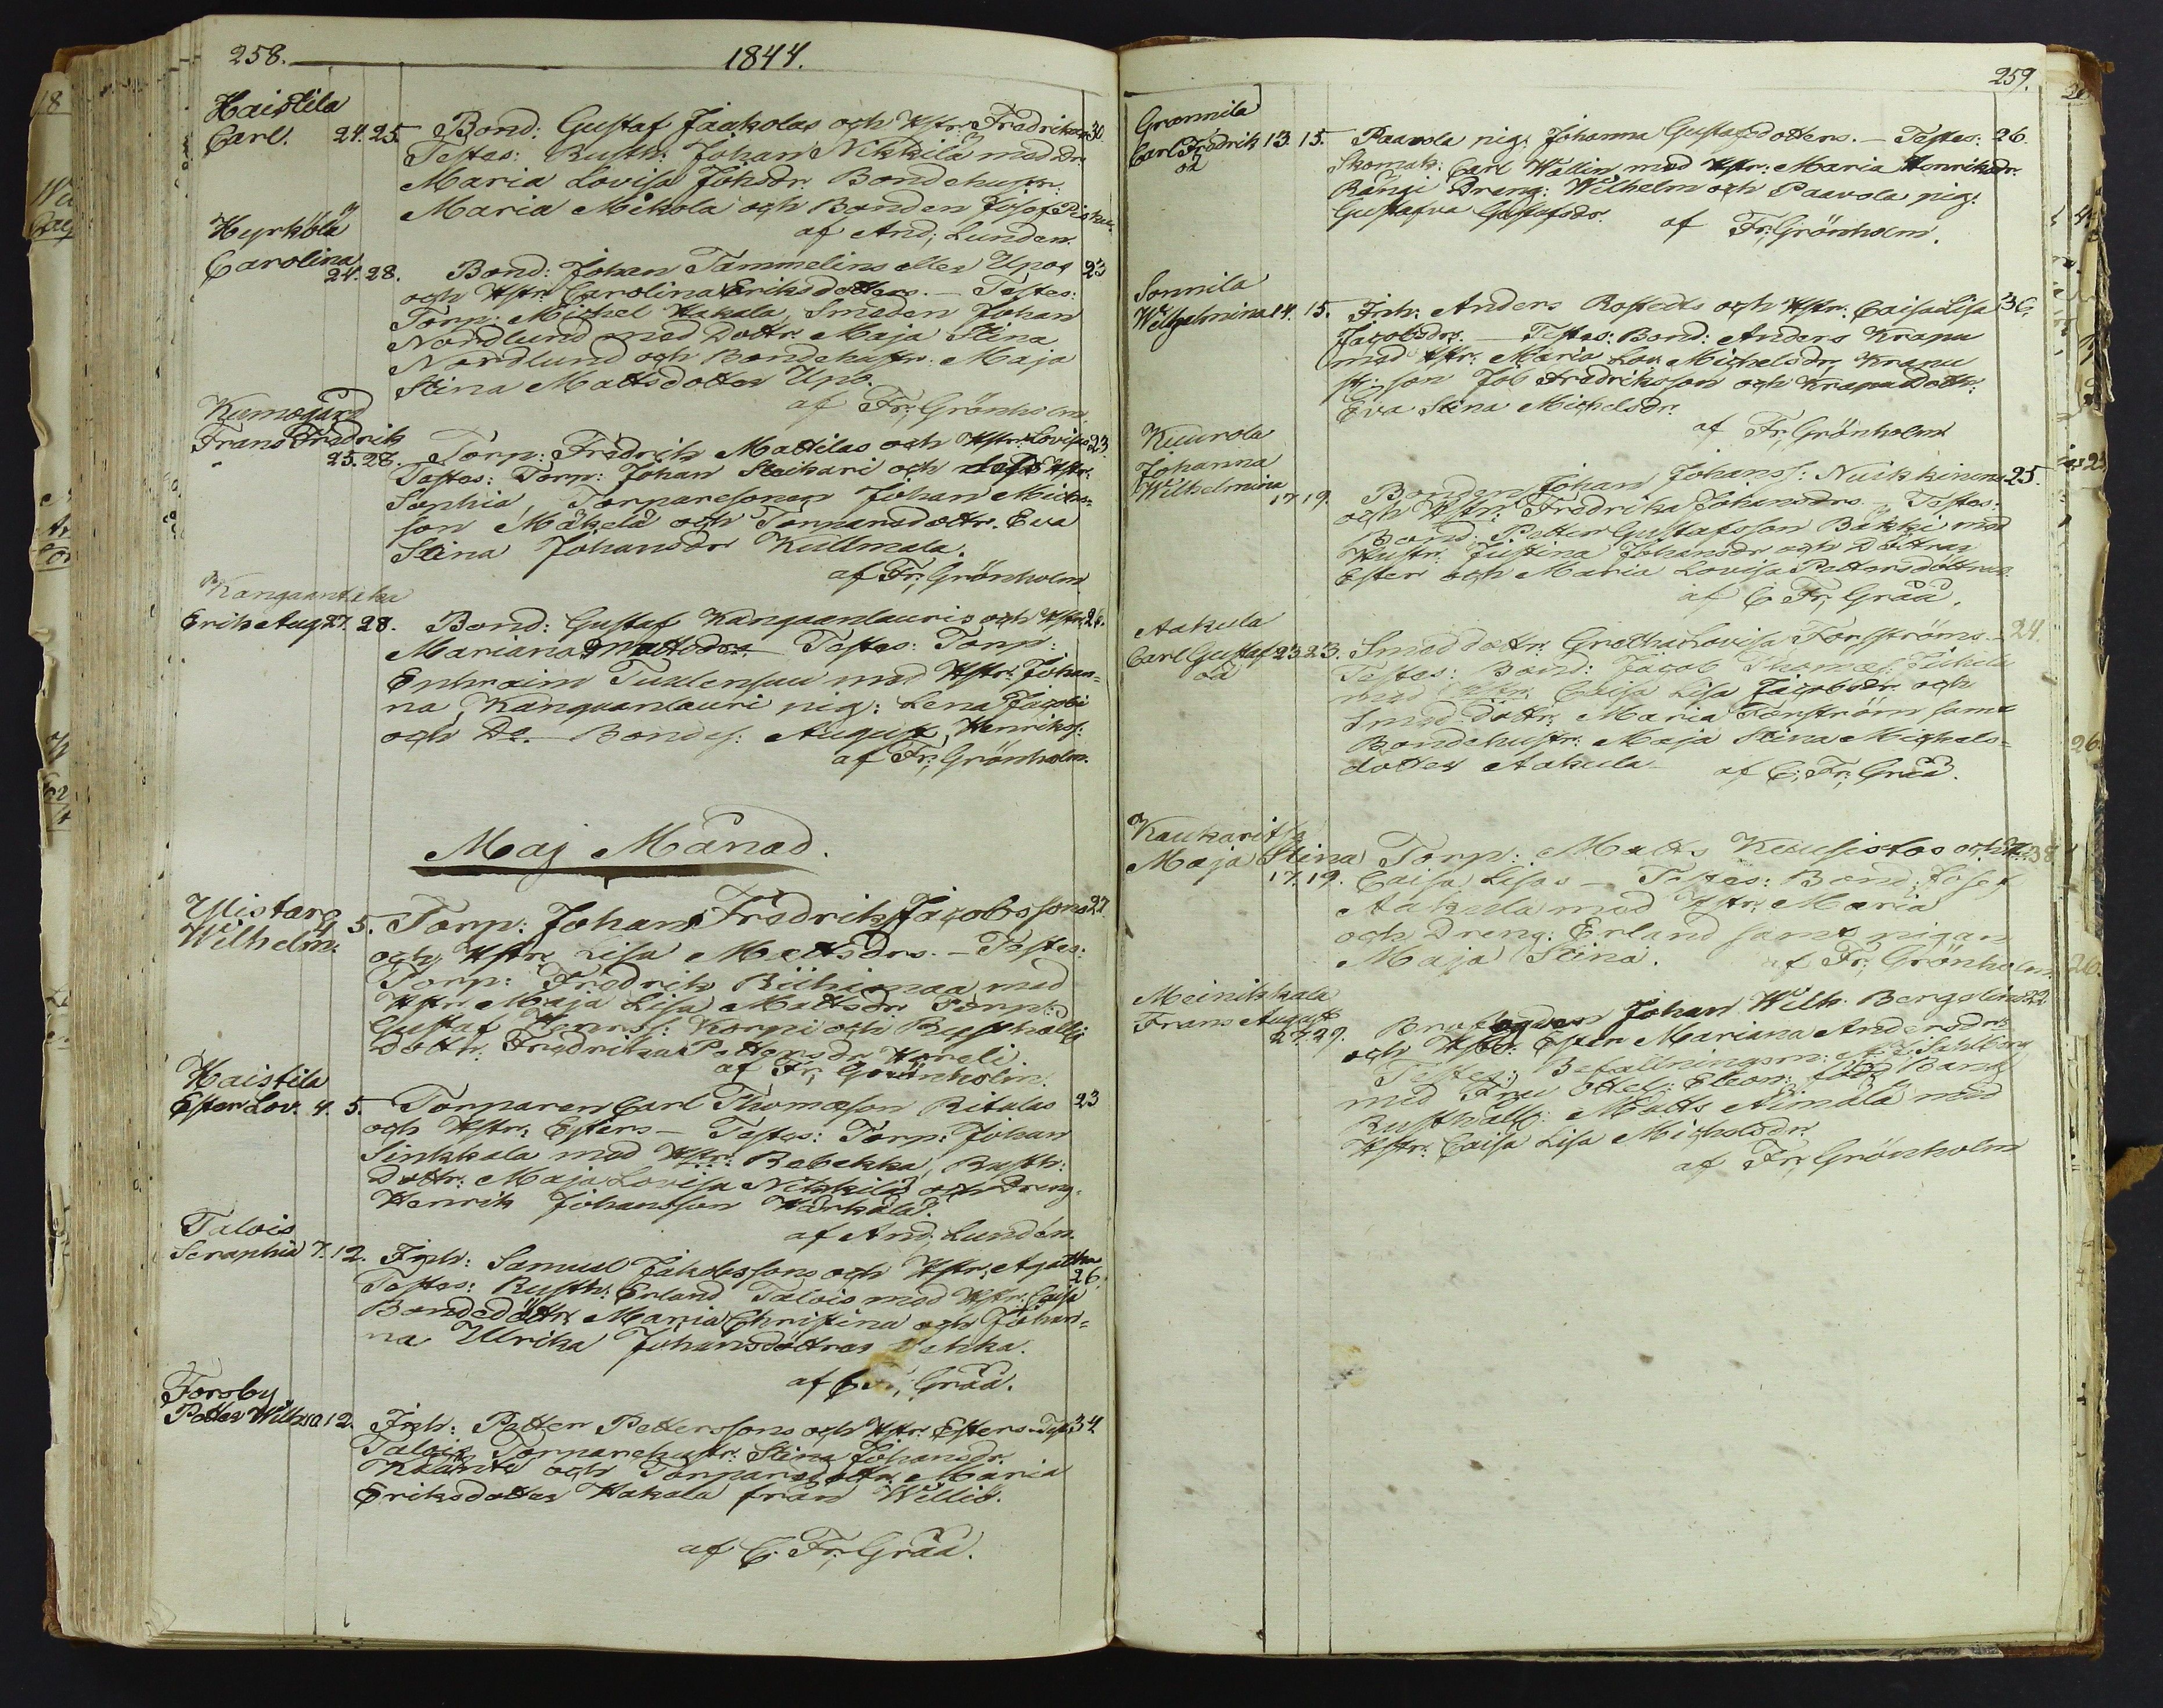 258. 1844.
Haistila
Carl. 24. 25. Bond: Gustaf Jaakolas och Hstr: Fredrikas 30
Testes: Rusth: Johan Nikkilä med Dr.
Maria Lovisa Johsdr. Bondehustr:
Maria Mikola och Bonden Josef
af And: Lunden.
Hyrkölä
Carolina
24. 28. Bond: Johan Tammelins eller Upos 23
och Hstr. Carolina Eriksdotters. - Testes:
Torp: Michel Hakala, Smeden Johan
Nordlund med Dottr. Maja Stina
Nordlund och Bondehustr: Maja
Stina Mattsdotter Upo.
af Fr: Grönholm
Kumogård
Frans Fredrik
25. 28. Torp: Fredrik Mattilas och Hstr: Lovisas 23.
Testes: Torp: Johan Steikari och dess Hstr:
Sophia, Torparesonen Johan Michs=
son Mäkelä och Torparedottr. Eva
Stina Johansdr Kullmala.
af Fr: Grönholm
Kangaantaka
Erik Aug 27. 28. Bond: Gustaf Kangaanlauris och Hstr: 26.
Mariana Mattsdrs Testes: Torp:
Ephraim Tuulensuu med Hstr: Johan=
na, Kangaanlauri pig: Lena Jacobi
och Do. Bondes: August Henriks:
af Fr: Grönholm.
Maj Månad.
Ylistaro
Wilhelm. 4. 5. Torp: Johan Fredrik Jacobssons 27
och Hstr. Lisa Mattsdrs. - Testes:
Torp: Fredrik Riihimaa med
Hstr. Maja Lisa Mattsdr. Torp:
Gustaf Henrss: Korpi och Rusthålls
Dottr. Fredrika Pettersdr Hareli.
af Fr: Grönholm.
Haistila
Ester Lov. 4. 5. Torparen Carl Thomasson Ritalas 23
och Hstr: Esters - Testes: Torp: Johan
Sinkkala med Hstr: Rebekka, Rusth:
Dottr. Maja Lovisa Nikkilä och Dreng.
Henrik Johansson Härkälä.
af And: Lundén.
Talois
Seraphia 7. 12. Inh: Samuel Jakobssons och Hstr: Agathas
26.
Testes: Rusth: Erland Talois med Hstr: Caisa
Bondedöttr. Maria Christina och Johan=
na Ulrika Johansdöttrar Uckka.
af C. Fr: Gråå.
Forsby
Petter Wilh. 10 12. Inh: Petter Petterssons och Hstr. Esters - Test: 34
Talois Torparehustr: Stina Johansdr.
och Torparedottr. Maria
Eriksdotter Hakala från Williö.
af C. Fr: Gråå.
259.
Grannila
Carl Fredrik 13. 15. Paavola pig: Johanna Gustafsdotters. - Testes: 26.
oä
Skomak: Carl Wallin med Hstr: Maria Henriksdr.
Bängi Dreng: Wilhelm och Paavola pig:
Gustafva Gustafsdr. af Fr: Grönholm.
Sonnila
Wilhelmina 14. 15. Inh: Anders Rosteds och Hstr: Caisa Lisa 36.
Jacobsdrs. - Testes: Bond: Anders Krapu
med Hstr: Maria Lov. Michelsdr, Krapu
st:son Job Fredriksson och Krapu Dottr:
Eva Stina Michelsdr.
af Fr: Grönholm
Kuurola
Johanna
Wilhelmina
17. 19. Bonden Johan Johanss: Nuikkinens 25.
och Hstr: Fredrika Johansdrs - Testes:
Bond: Petter Gustafsson Bäkki med
Hustr: Justina Johansdr och Döttrar
Ester och Maria Lovisa Pettersdöttrar.
af C. Fr: Gråå.
Aakula
Carl Gustaf 23. 23. Smeddottr. Gretha Lovisa Forsströms. - 24.
oä
Testes: Bond: Jacob Thomass:
med Hstr. Caisa Lisa Jacobsdr. och
Smed döttr. Maria Forsström samt
Bondehustr: Maja Stina Michels=
dotter Aakula - af C. Fr: Gråå.
Kaukaritsa
Maja Stina Torp: Matts Kuusistos och H. 38.
17. 19. Caisa Lisas - Testes: Bond: Josef
Aakula med Hstr: Maria
och Dreng: Erland samt pigan
Maja Stina. af Fr: Grönholm.
Meinikkala
Frans August
27. 29. Johan Wilh. Bergelins 22.
och Hstr: Ester Mariana Andersdrs
Testes: Befallningsm: Sahlberg
med Fru Ottel: Eleon: född Bang
Rusthåll: Matts Äimälä med
Hstr: Caisa Lisa Michelsdr.
af Fr: Grönholm